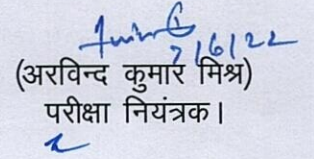 7/6/22
(अरविन्द कुमार मिश्र)
परीक्षा नियंत्रक।